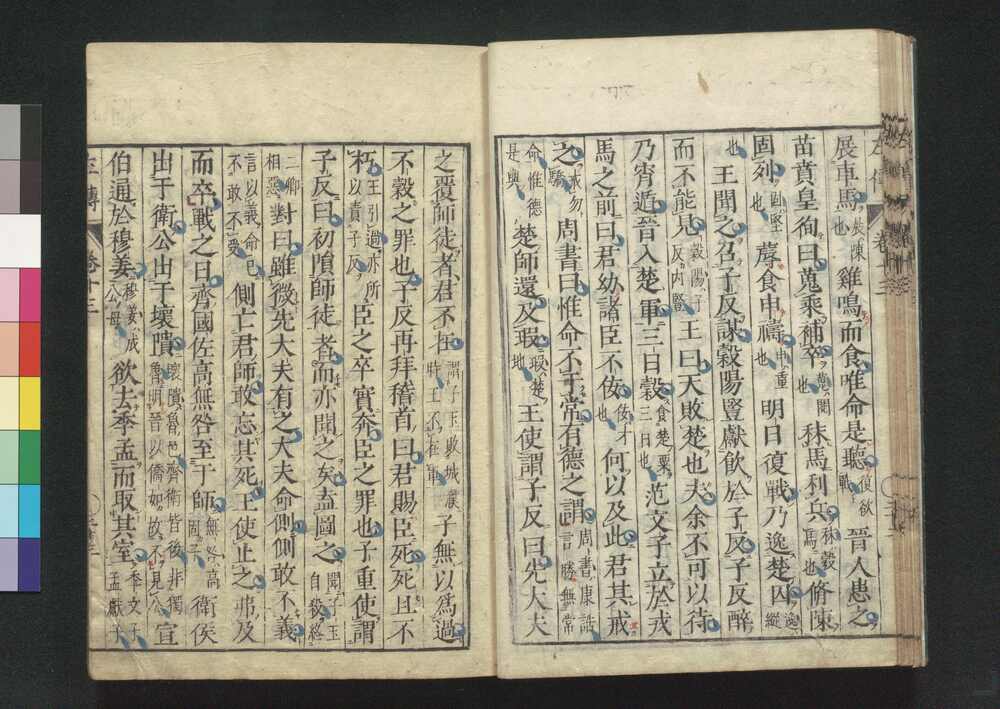 左傳 卷十三
展車馬展陳也雞鳴而食唯命是聽復欲戰晉人患之
苗賁皇徇曰蒐乘補卒蒐閱也秣馬利兵秣穀馬也脩陳
固列固堅也蓐食申禱申重也明日復戰乃逸楚囚逸縱
也王聞之召子反謀穀陽豎獻飲於子反子反醉
而不能見穀陽子反内豎王曰天敗楚也夫余不可以待
乃宵遁晉入楚軍三日穀食楚粟三日也范文子立於戎
馬之前曰君幼諸臣不佞佞才也何以及此君其戒
之戒勿驕周書曰惟命不于常有德之謂周書康誥言勝無常
命惟德是與楚師還及瑕瑕楚地王使謂子反曰先大夫
之覆師徒者君不在謂子玉敗城濮時王不在軍子無以爲過
不穀之罪也子反再拜稽首曰君賜臣死死且不
朽王引過亦所以責子反臣之卒實奔臣之罪也子重使謂
子反曰初隕師徒者而亦聞之矣盍圖之聞子玉自殺終
二卿相惡對曰雖微先大夫有之大夫命側側敢不義
言以義命己不敢不受側亡君師敢忘其死王使止之弗及
而卒戰之日齊國佐高無咎至于師無咎高固子衛侯
出于衛公出于壞隤壞隤魯邑齊衛皆後非獨魯明晉以僑如故不見公宣
伯通於穆姜穆姜成公母欲去季孟而取其室季文子孟獻子
左傳 卷十三